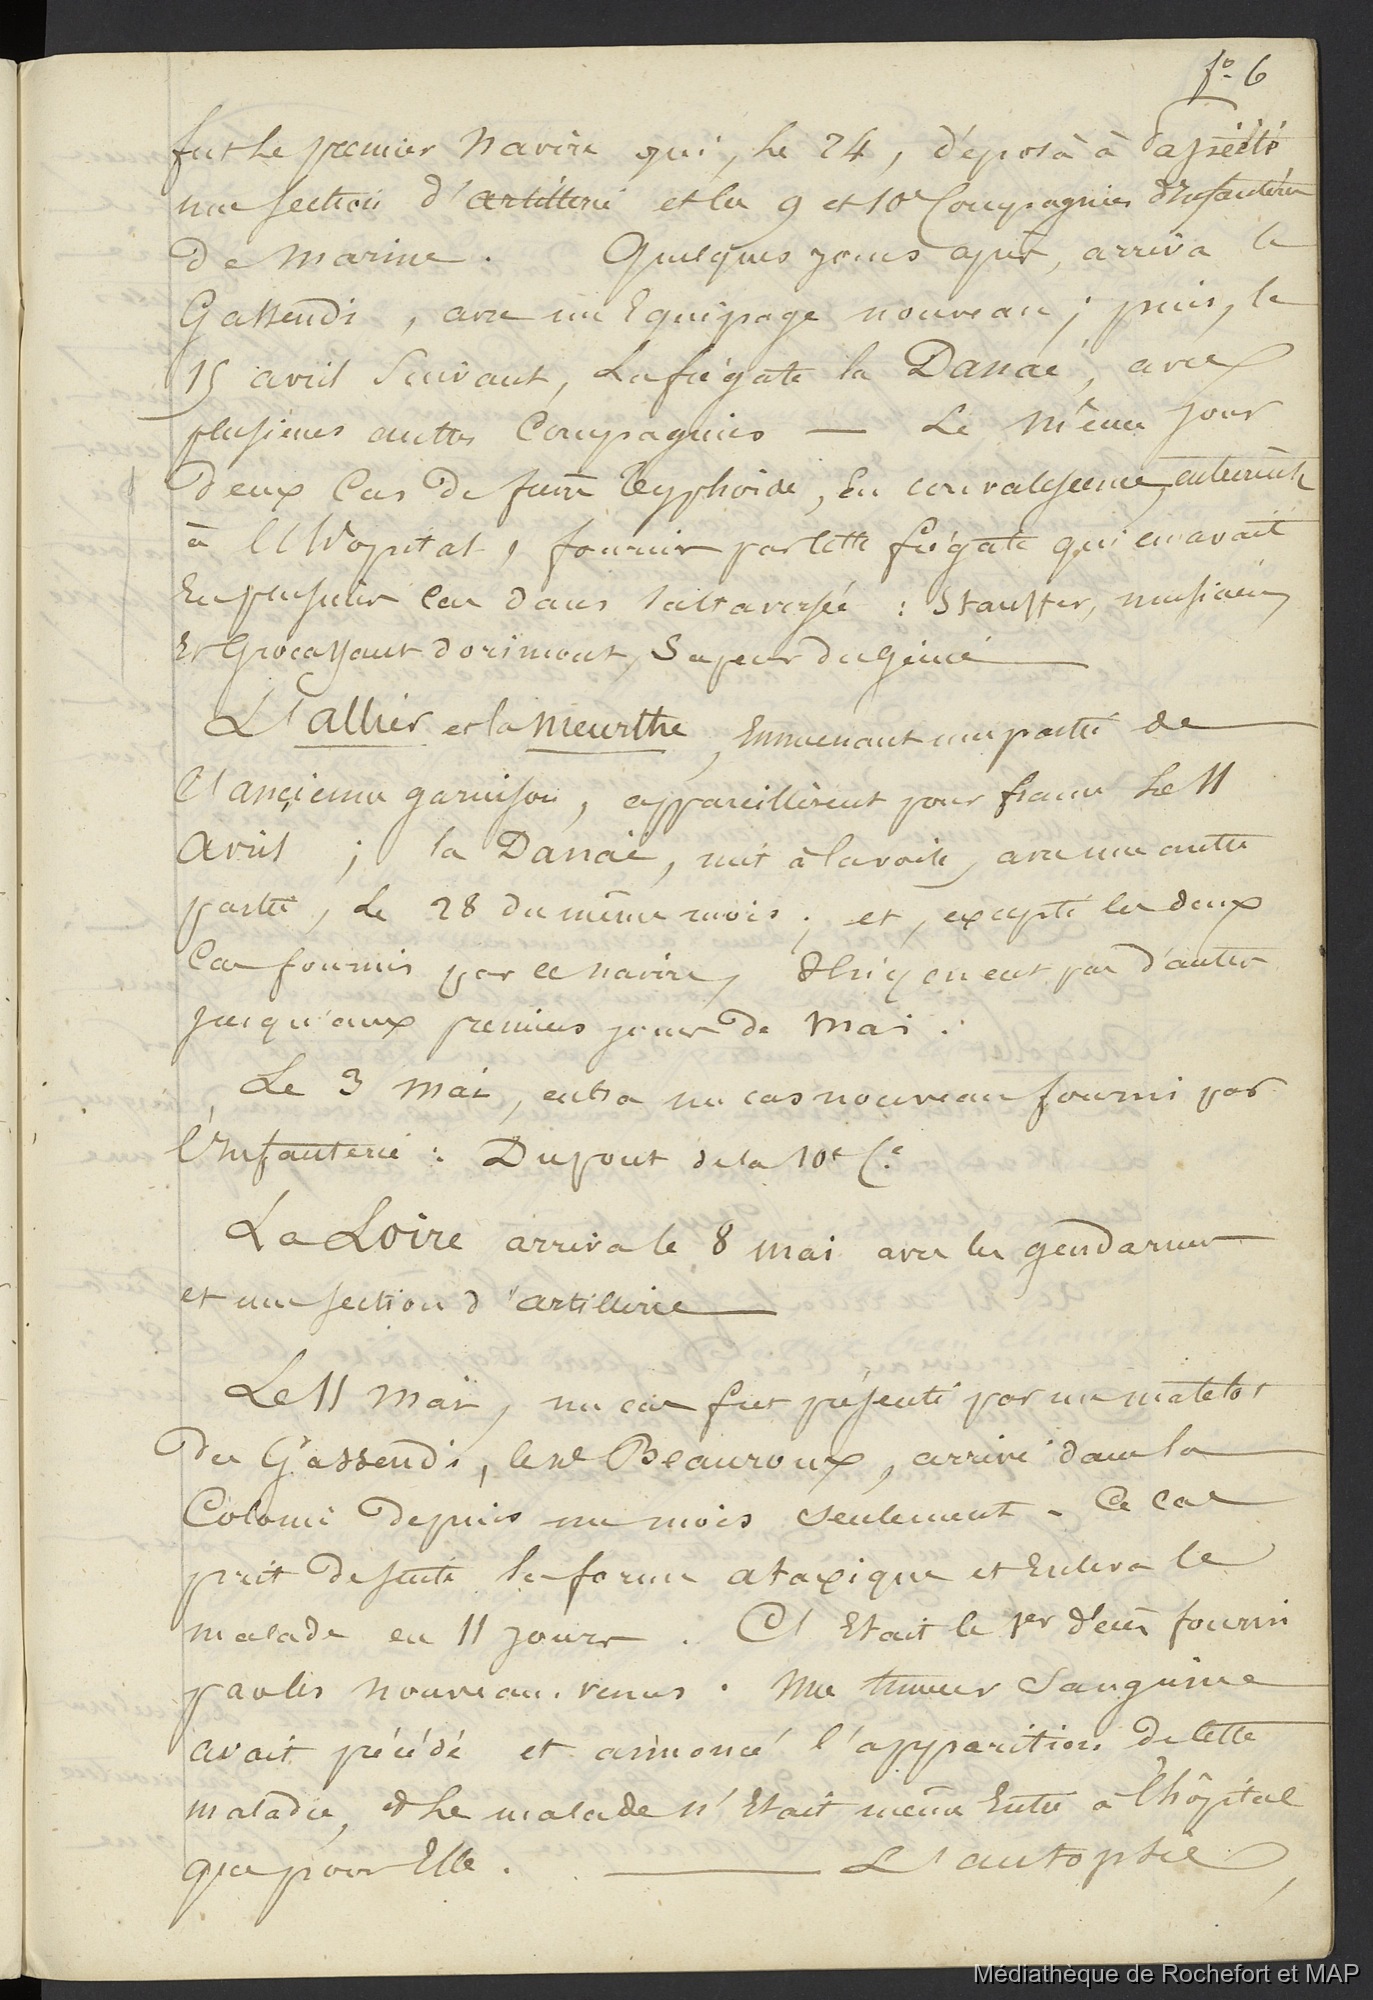 fo 6
fut le premier navire qui, le 24, déposa à Papéété
une section d'artillerie et les 9 et 10e Compagnies d'Infanterie
de marine. Quelques jours après, arriva le
Gassendi, avec un Equipage nouveau; puis, le
15 avril suivant, la frégate la Danaé, avec
plusieurs autres Compagnies — Le même jour
deux Cas de fièvre typhoïde, en convalescence, entrèrent
à l'Hôpital, fournis par cette frégate qui en avait
eu plusieurs cas dans la traversée : Stauffer, musicien,
Et dorimont, Sapeur du génie
L'allier et la Meurthe, Emmenant une partie de
l'ancienne garnison, appareillèrent pour france le 11
avril ; la Danaé, mit à la voile, avec une autre
partie, le 28 du même mois; et, excepté les deux
Cas fournis par ce navire, il n'y en eut pas d'autres
jusqu'aux premiers jours de mai.
Le 3 mai, entra un cas nouveau fourni par
l'Infanterie : Dupont de la 10e Cie
La Loire arriva le 8 mai avec les gendarmes
et une section d'artillerie
Le 11 mai, un cas fut présenté par un matelot
du Gassendi, le né Beauroux, arrivé dans la
Colonie depuis un mois seulement. Ce cas
prit de suite la forme ataxique et enleva le
malade en 11 jours. C'Etait le 1er d'eux fourni
par les nouveau-venus. Une tumeur Sanguine
avait précédé et annoncé l'apparition de cette
maladie, et le malade n'Etait même Entré à l'hôpital
que pour Elle. — L'autopsie,
Médiathèque de Rochefort et MAP